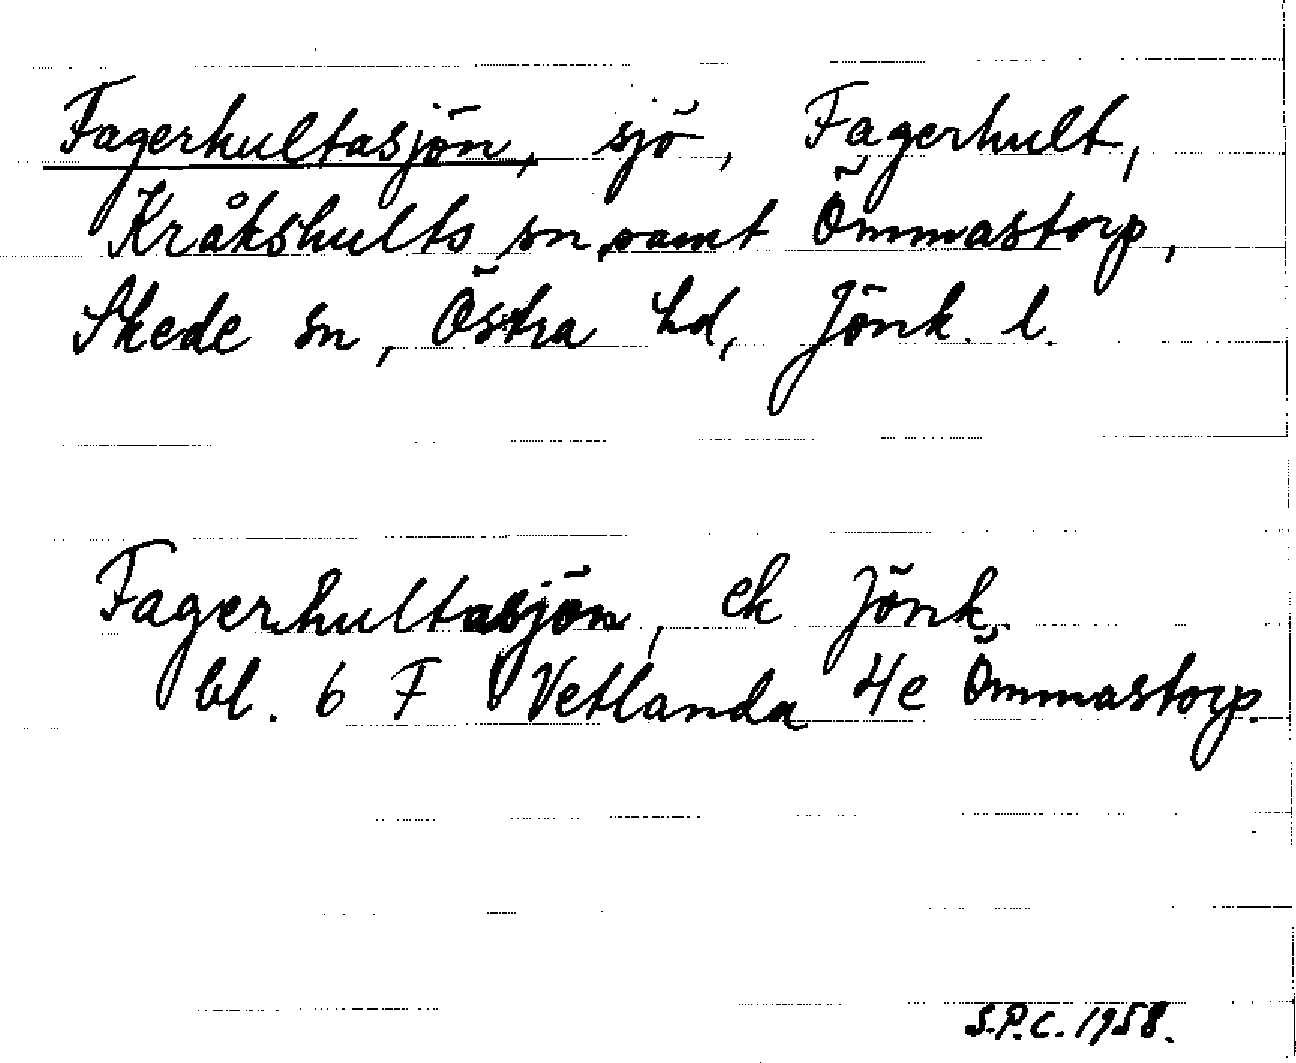 Fagerhultasjön, sjö, Fagerhult,
Kråkshults sn samt Ömmastorp,
Skede sn, Östra hd, Jönk. l.
Fagerhultasjön, ek Jönk.
bl. 6 F Vetlanda 4e Ömmastorp.
S.P.C. 1958.